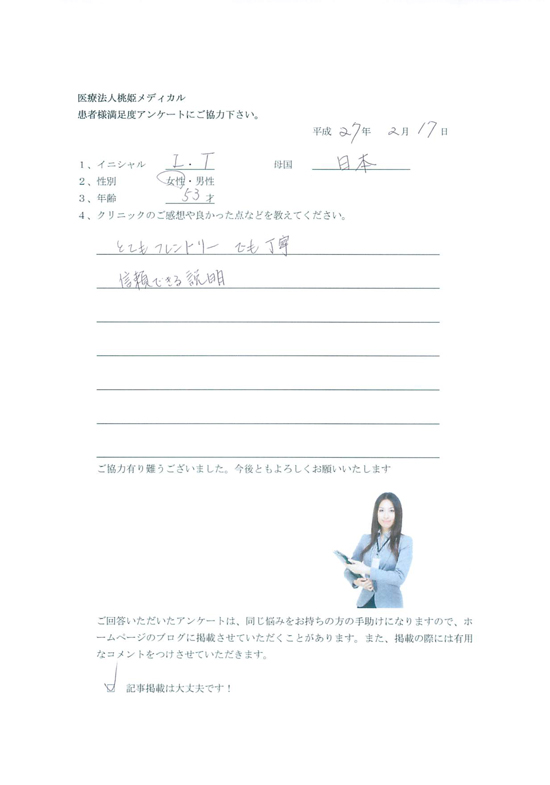 医療法人桃姫メディカル
患者様満足度アンケートにご協力下さい。
平成 27年 2月 17日
1、イニシャル I.T 母国 日本
2、性別 女性・男性
3、年齢 53才
4、クリニックのご感想や良かった点などを教えてください。
とても フレンドリー でも 丁寧
信頼できる説明
ご協力有り難うございました。今後ともよろしくお願いいたします
ご回答いただいたアンケートは、同じ悩みをお持ちの方の手助けになりますので、ホ
ームページのブログに掲載させていただくことがあります。また、掲載の際には有用
なコメントをつけさせていただきます。
記事掲載は大丈夫です!